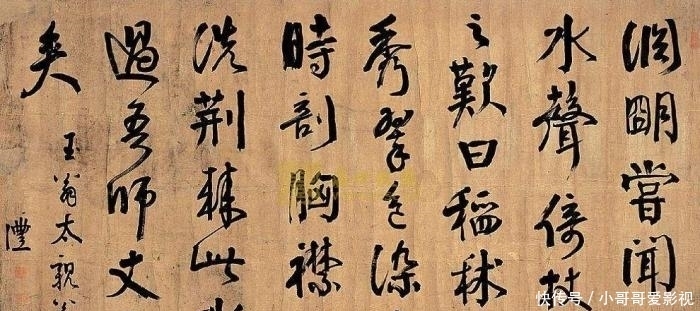 渊明嘗聞
水聲倚杖
之歎曰稻秫
秀翠色染
時剖胸襟
洗荆棘此
過吾師丈
矣
王翁太親翁
灃
快传号 / 小哥哥爱影视